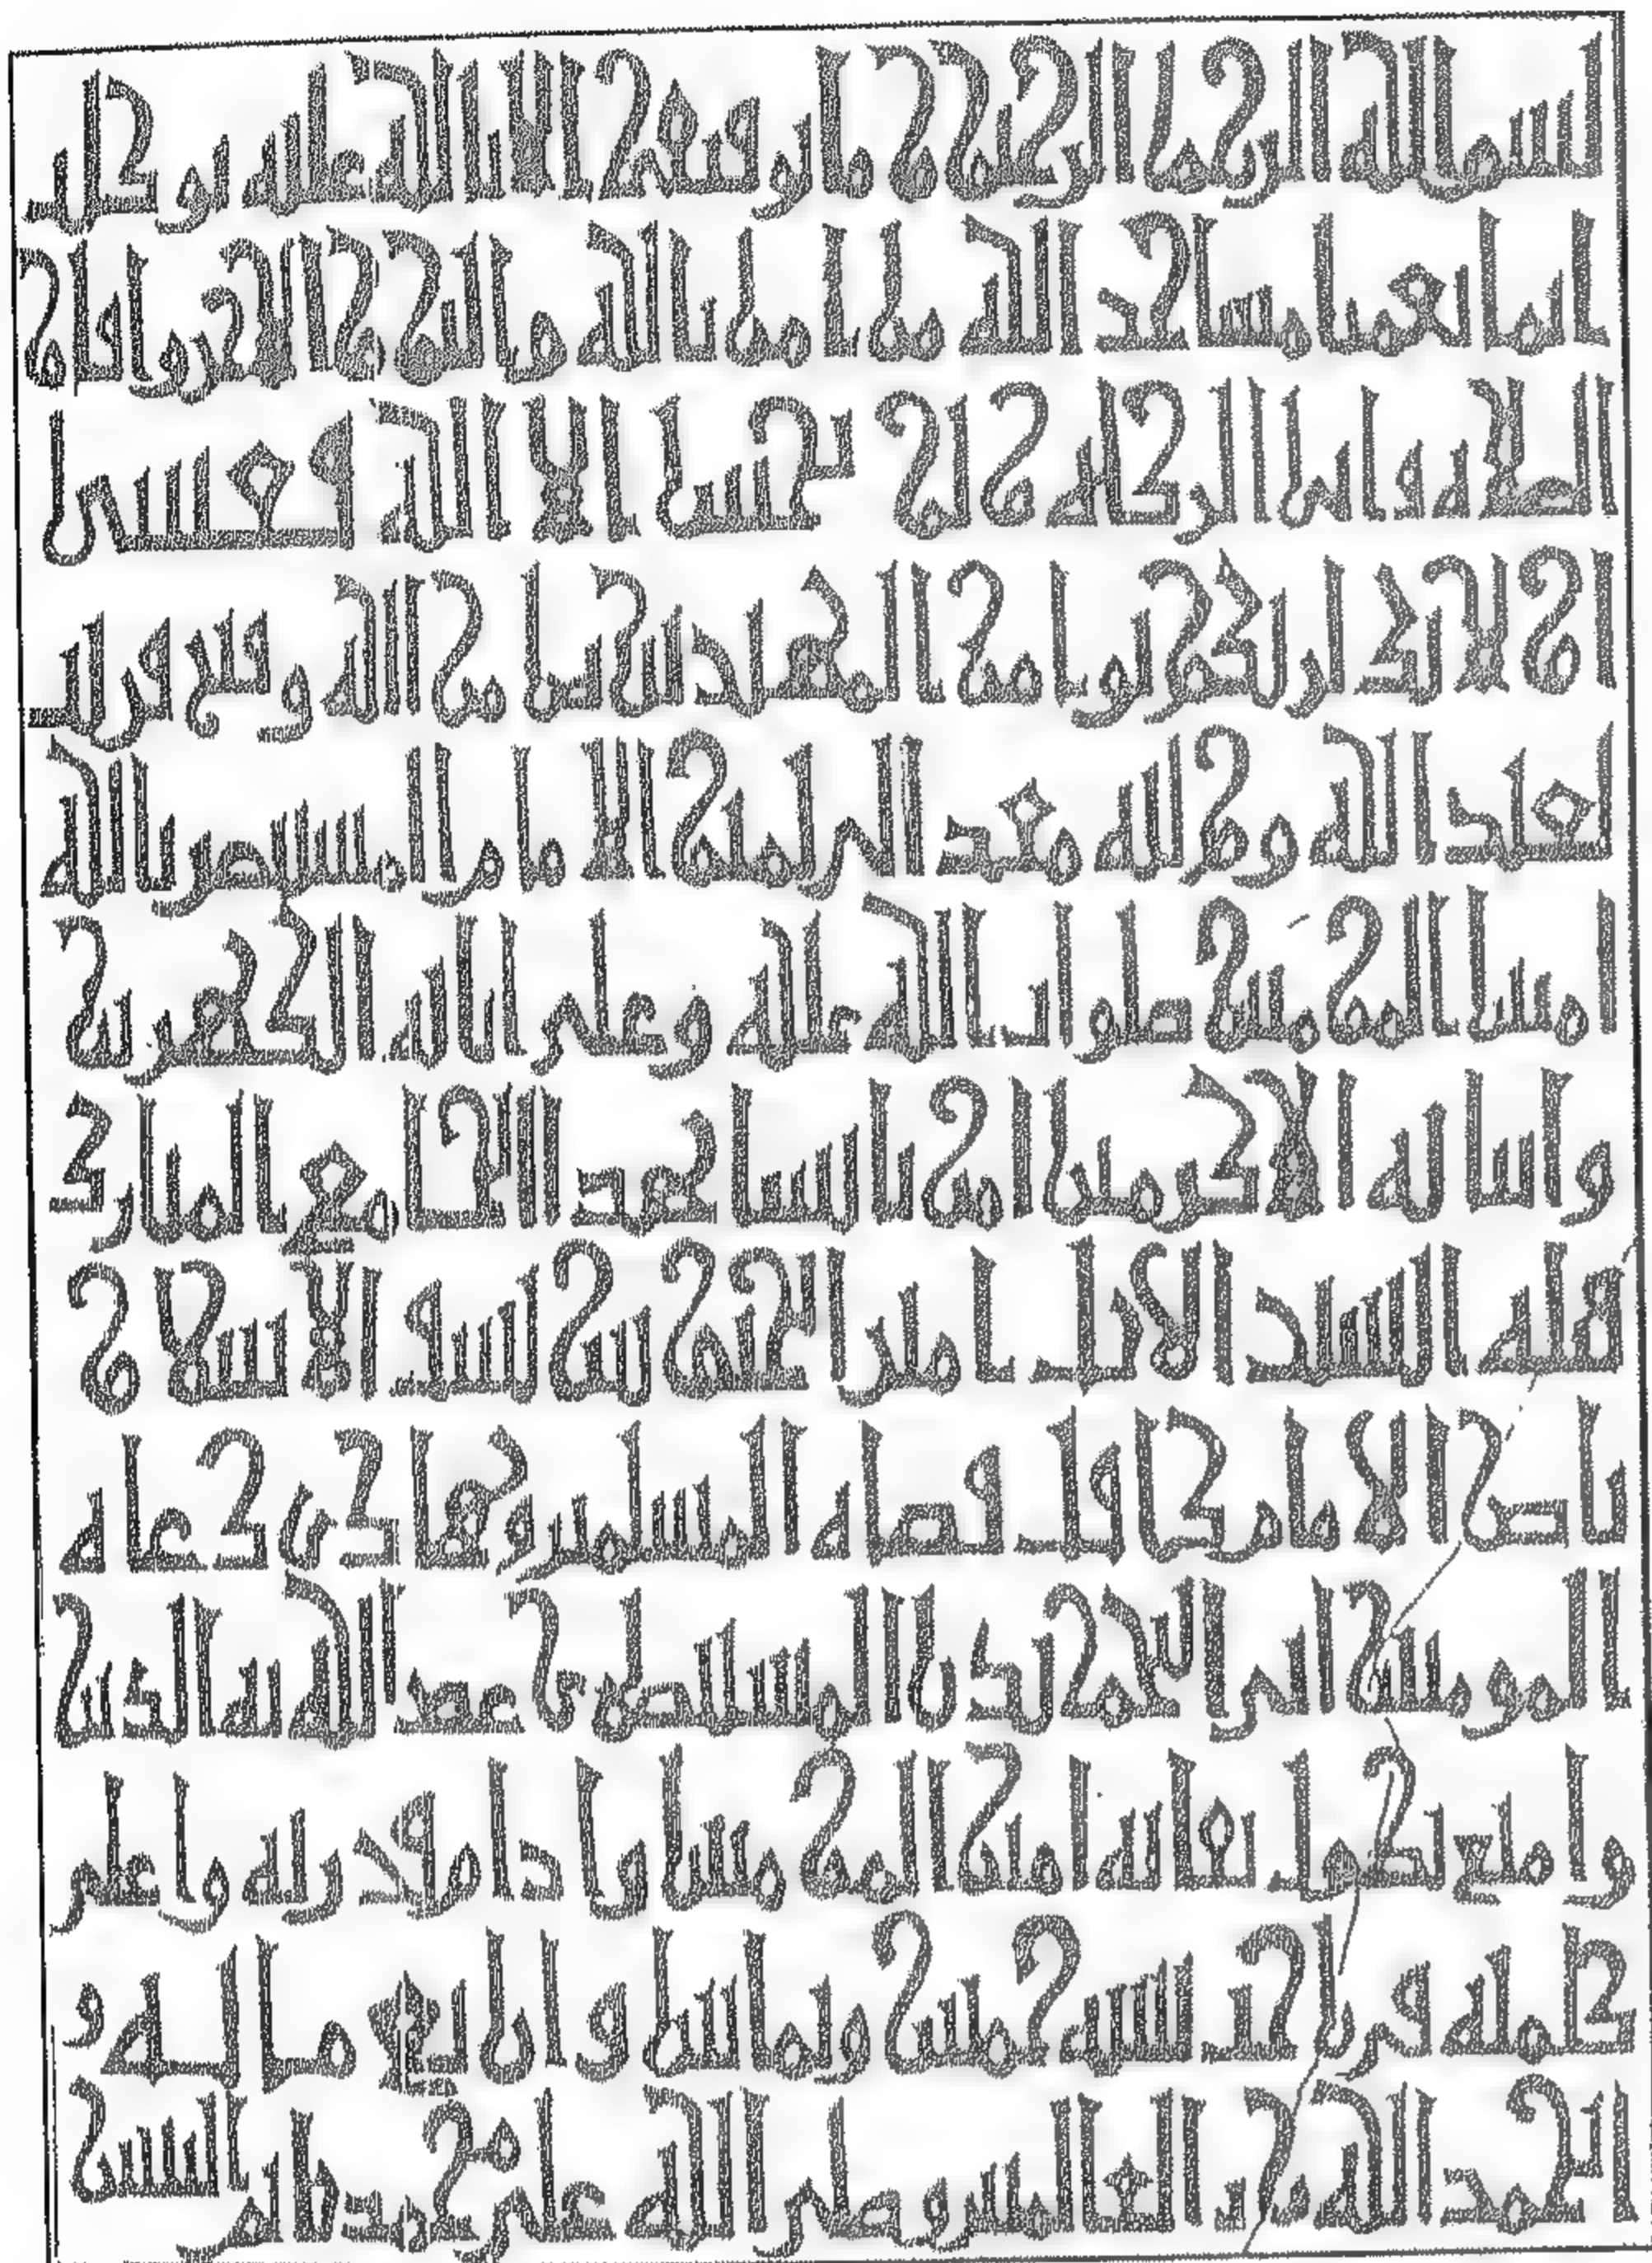 بسم الله الرحمن الرحيم وما توفيقي الا بالله عليه توكلت
انما يعمر مساجد الله من امن بالله واليوم الاخر واقام
الصلاه واتى الزكاه ولم يخش الا الله فعسى
اولئك ان يكونوا من المهتدين نصر من الله وفتح قريب
لعبد الله ووليه معد ابي تميم الامام المستنصر بالله
امير المؤمنين صلوات الله عليه وعلى ابائه الطاهرين
وابنائه الاكرمين امر بانشاء هذا الجامع المبارك
فتاه السيد الاجل امير الجيوش سيف الاسلام
ناصر الامام كافل قضاه المسلمين وهادي دعاه
المومنين ابو النجم بدر المستنصري عضد الله به الدين
وامتع بطول بقائه امير المؤمنين وادام قدرته واعلى
كلمته في رجب سنة خمس وثمانين واربع مائه و
الحمد لله رب العالمين وصلى الله على محمد النبيين